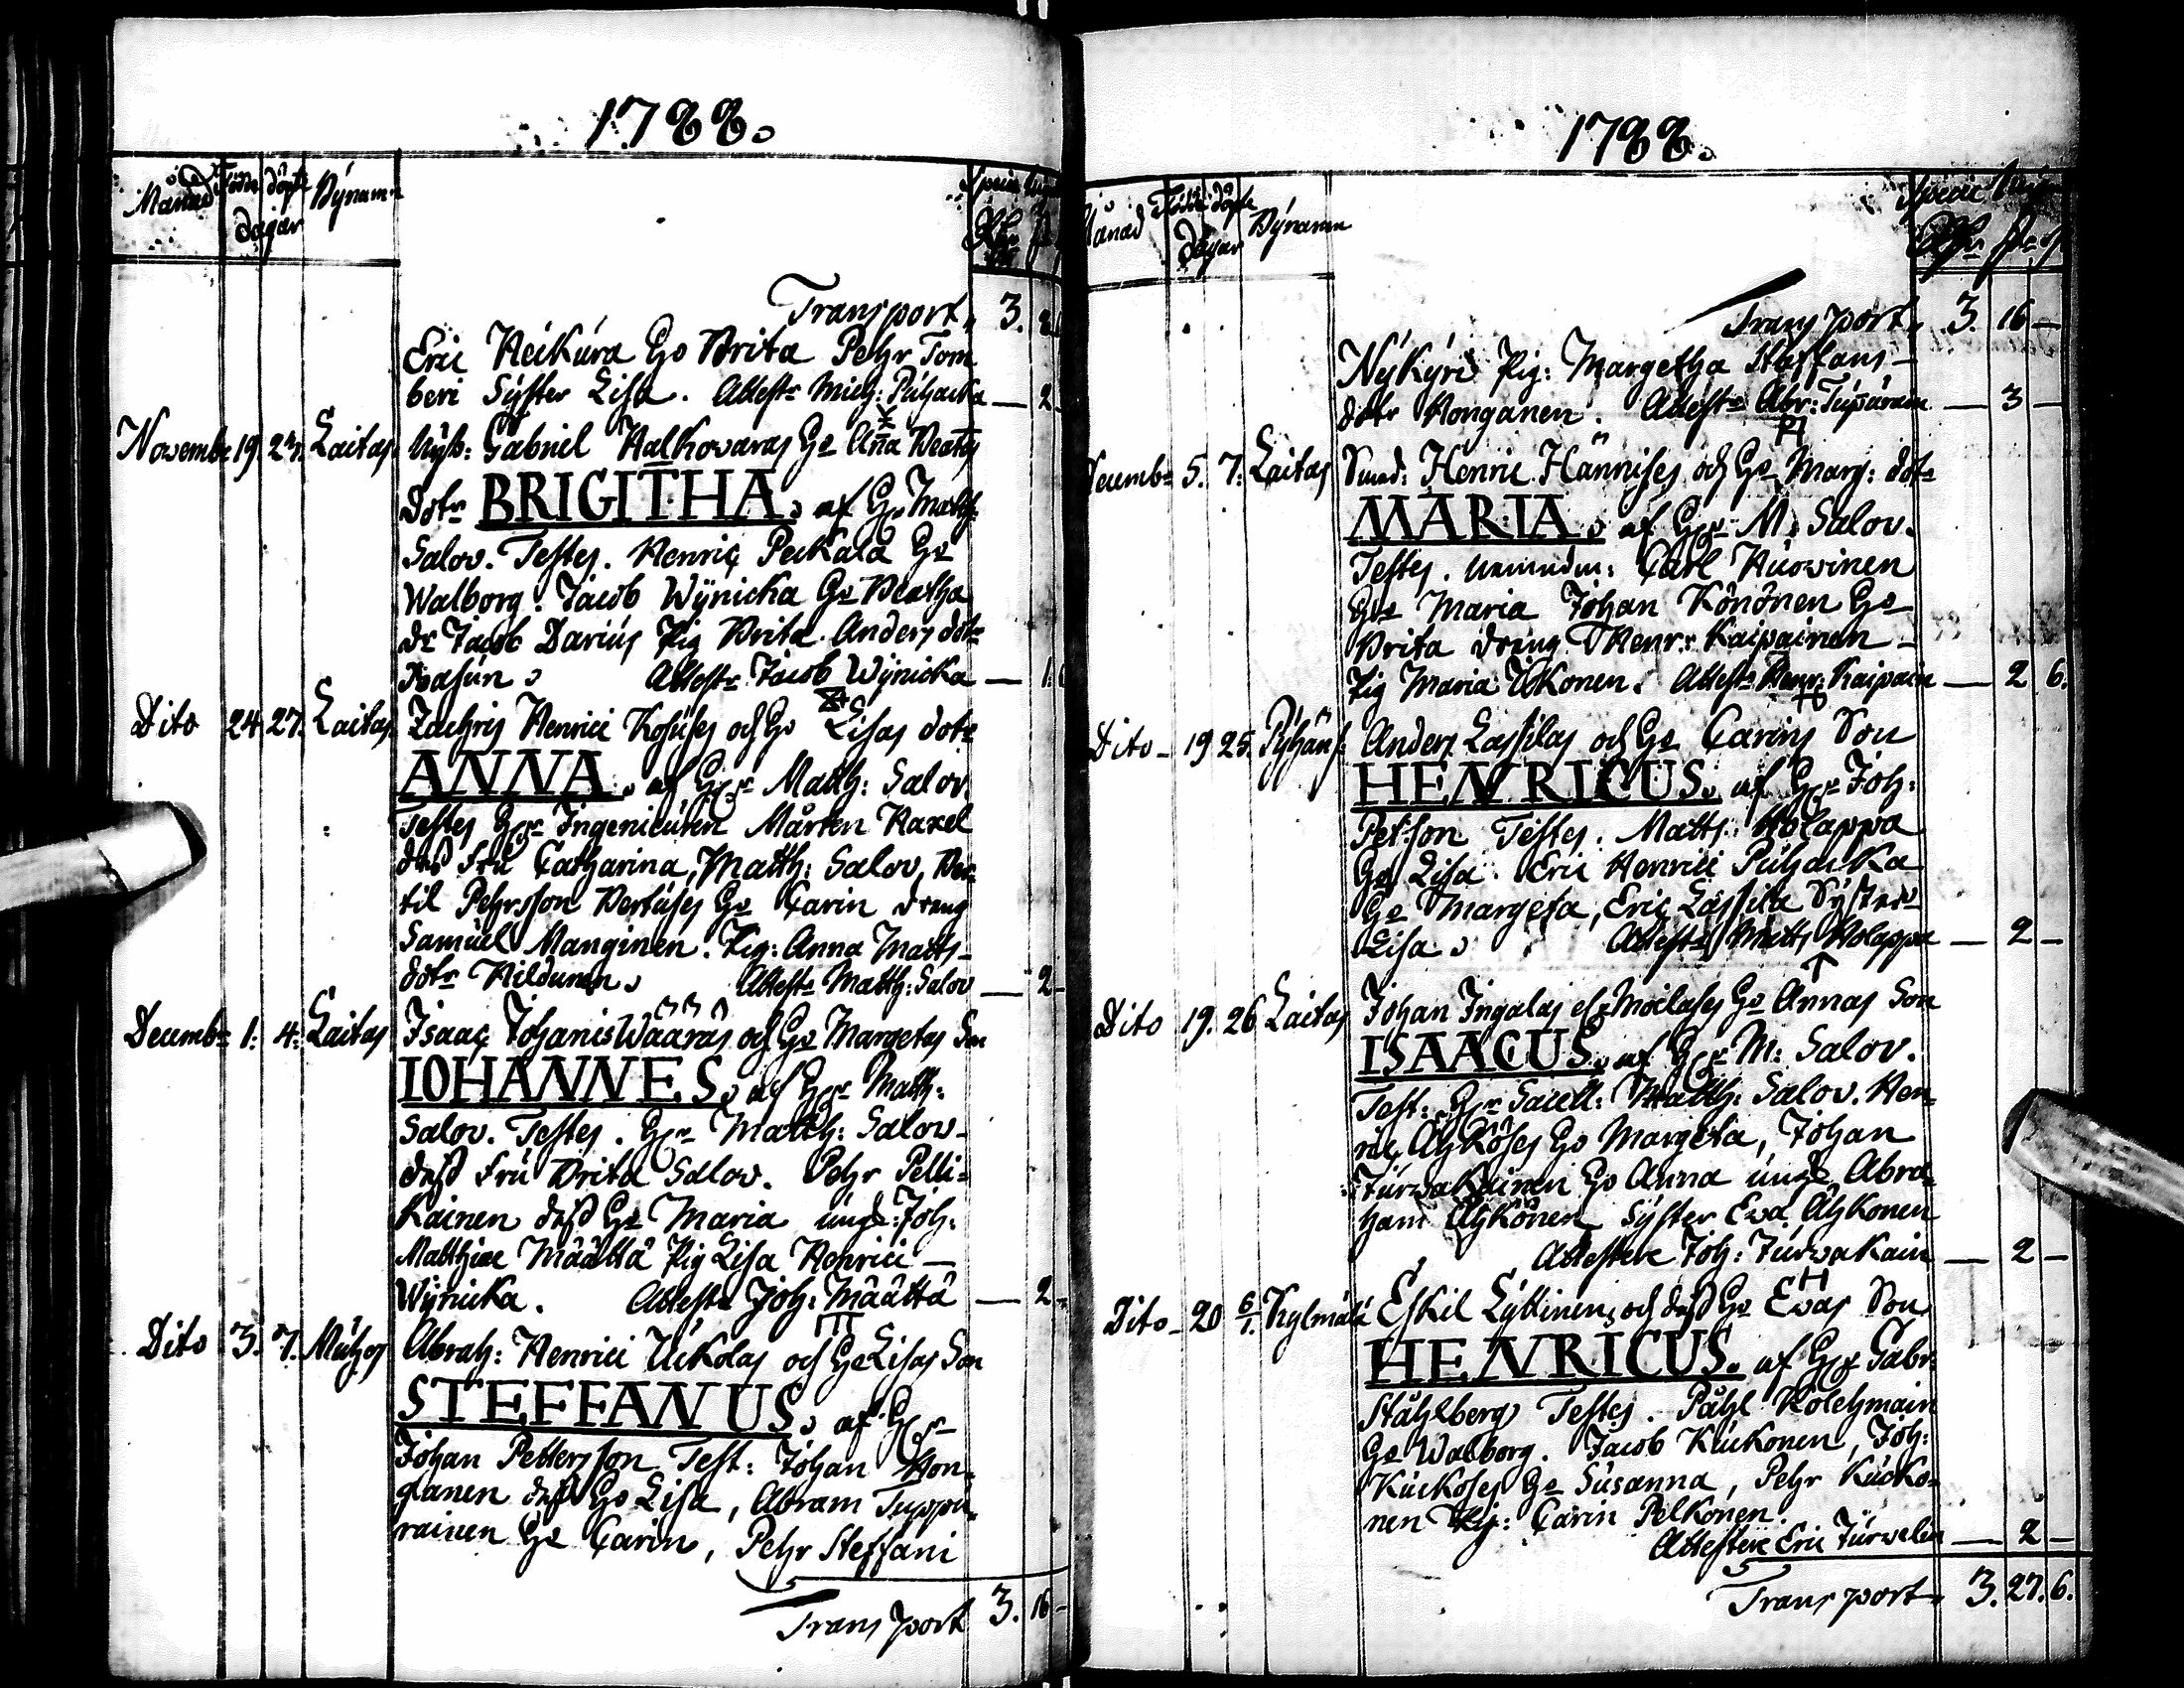 1788.
Månad Födde döpte Bynamn
dagar
Transport 3.
Eric Heikura Ho Brita Pehr Tom
beri Syster Lisa. Attest: Mich: Puhacka — 2
Novemb: 19. 23. Laitas. Gabriel Halkowaras Ho Aña Beatæ
dotr BRIGITHA. af Hr Matth:
Salov. Testes. Henric Peckala Ho
Walborg. Jacob Wynicka Ho Beatha
dr Jacob Darius Pig Brita Anders dotr
Attestr Jacob Wynicka — 1.
Dito 24. 27. Laitas. Zachris Henrici Kosuses och Ho Lisas dotr
ANNA. af Hr Matth: Salov.
Testes Hr Ingenieuren Mårten Haxel
dess Fru Catharina, Matth: Salov, Ber-
til Pehrsson Pertuses Ho Carin dreng
Samuel Manginen. Pig: Anna Matts-
dotr Hildunen. Attestr Matth: Salov — 2
Decembr 1. 4. Laitas Isaac Johanis Wäaräs och Ho Margetas Son
IOHANNES. af Hr Matth:
Salov. Testes. Hr Matth: Salov-
dess Fru Brita Salov. Pehr Pelli-
kainen dess Ho Maria ungk: Joh:
Matthiæ Määttä Pig Lisa Henrici —
Wynicka. Attestr Joh: Määttä — 2
Dito 3. 7. Muhos Abrah: Henrici Uckolas och Ho Lisas Son
STEFFANUS. af Hr
Johan Pettersson Test: Johan Hon-
ganen dess Ho Lisa, Abram Tuppu-
rainen Ho Carin, Pehr Steffani
Transport 3. 16 -
1788.
Månad Födde döpte Bynamn
dagar
Transport 3. 16 —
Nykyri Pig: Margetha Staffans-
dotr Honganen. Attestr Abr: Tupurain — 3 —
Decembr 5. 7. Laitas Smed: Henric Hännises och Ho Marg: dotr
MARIA. af Hr M: Salov.
Testes. Carl Huovinen
Ho Maria Johan Könönen Ho
Brita dreng Henr: Kaipainen —
Pig Maria Iokonen. Attestr Henr: Kaipain — 2 6.
Dito - 19 25. Pyhäns: Anders Lassilas och Ho Carins Son
HENRICUS. af Hr Joh:
Petsson Testes. Matts: Holappa
Ho Lisa. Eric Henrici Puhacka
Ho Margeta, Eric Lassila Syster
Lisa. Attestr Matts Holappa — 2 —
Dito 19. 26 Laitas Johan Ingalas elr Moilases Ho Annas Son
ISAACUS. af Hr M: Salov.
Test: Hr Sacell: Matth: Salov. Hen-
ric Ahköses Ho Margeta, Johan
Turwakainen Ho Anna ungk Abra-
ham Ahkönen Syster Eva Ahkonen
Attesterr Joh: Turwakain — 2 —
Dito - 20 6/1. Kylmälä Eskil Lyttinens och dess Ho Evas Son
HENRICUS. af Hr Gabr:
Ståhlberg Testes. Påhl Kolehmain
Ho Walborg. Jacob Kuckonen, Joh:
Kuckoses Ho Susanna, Pehr Kucko-
nen Pig: Carin Pelkonen.
Attesterr Eric Turwelin — 2 —
Transport 3. 27. 6.